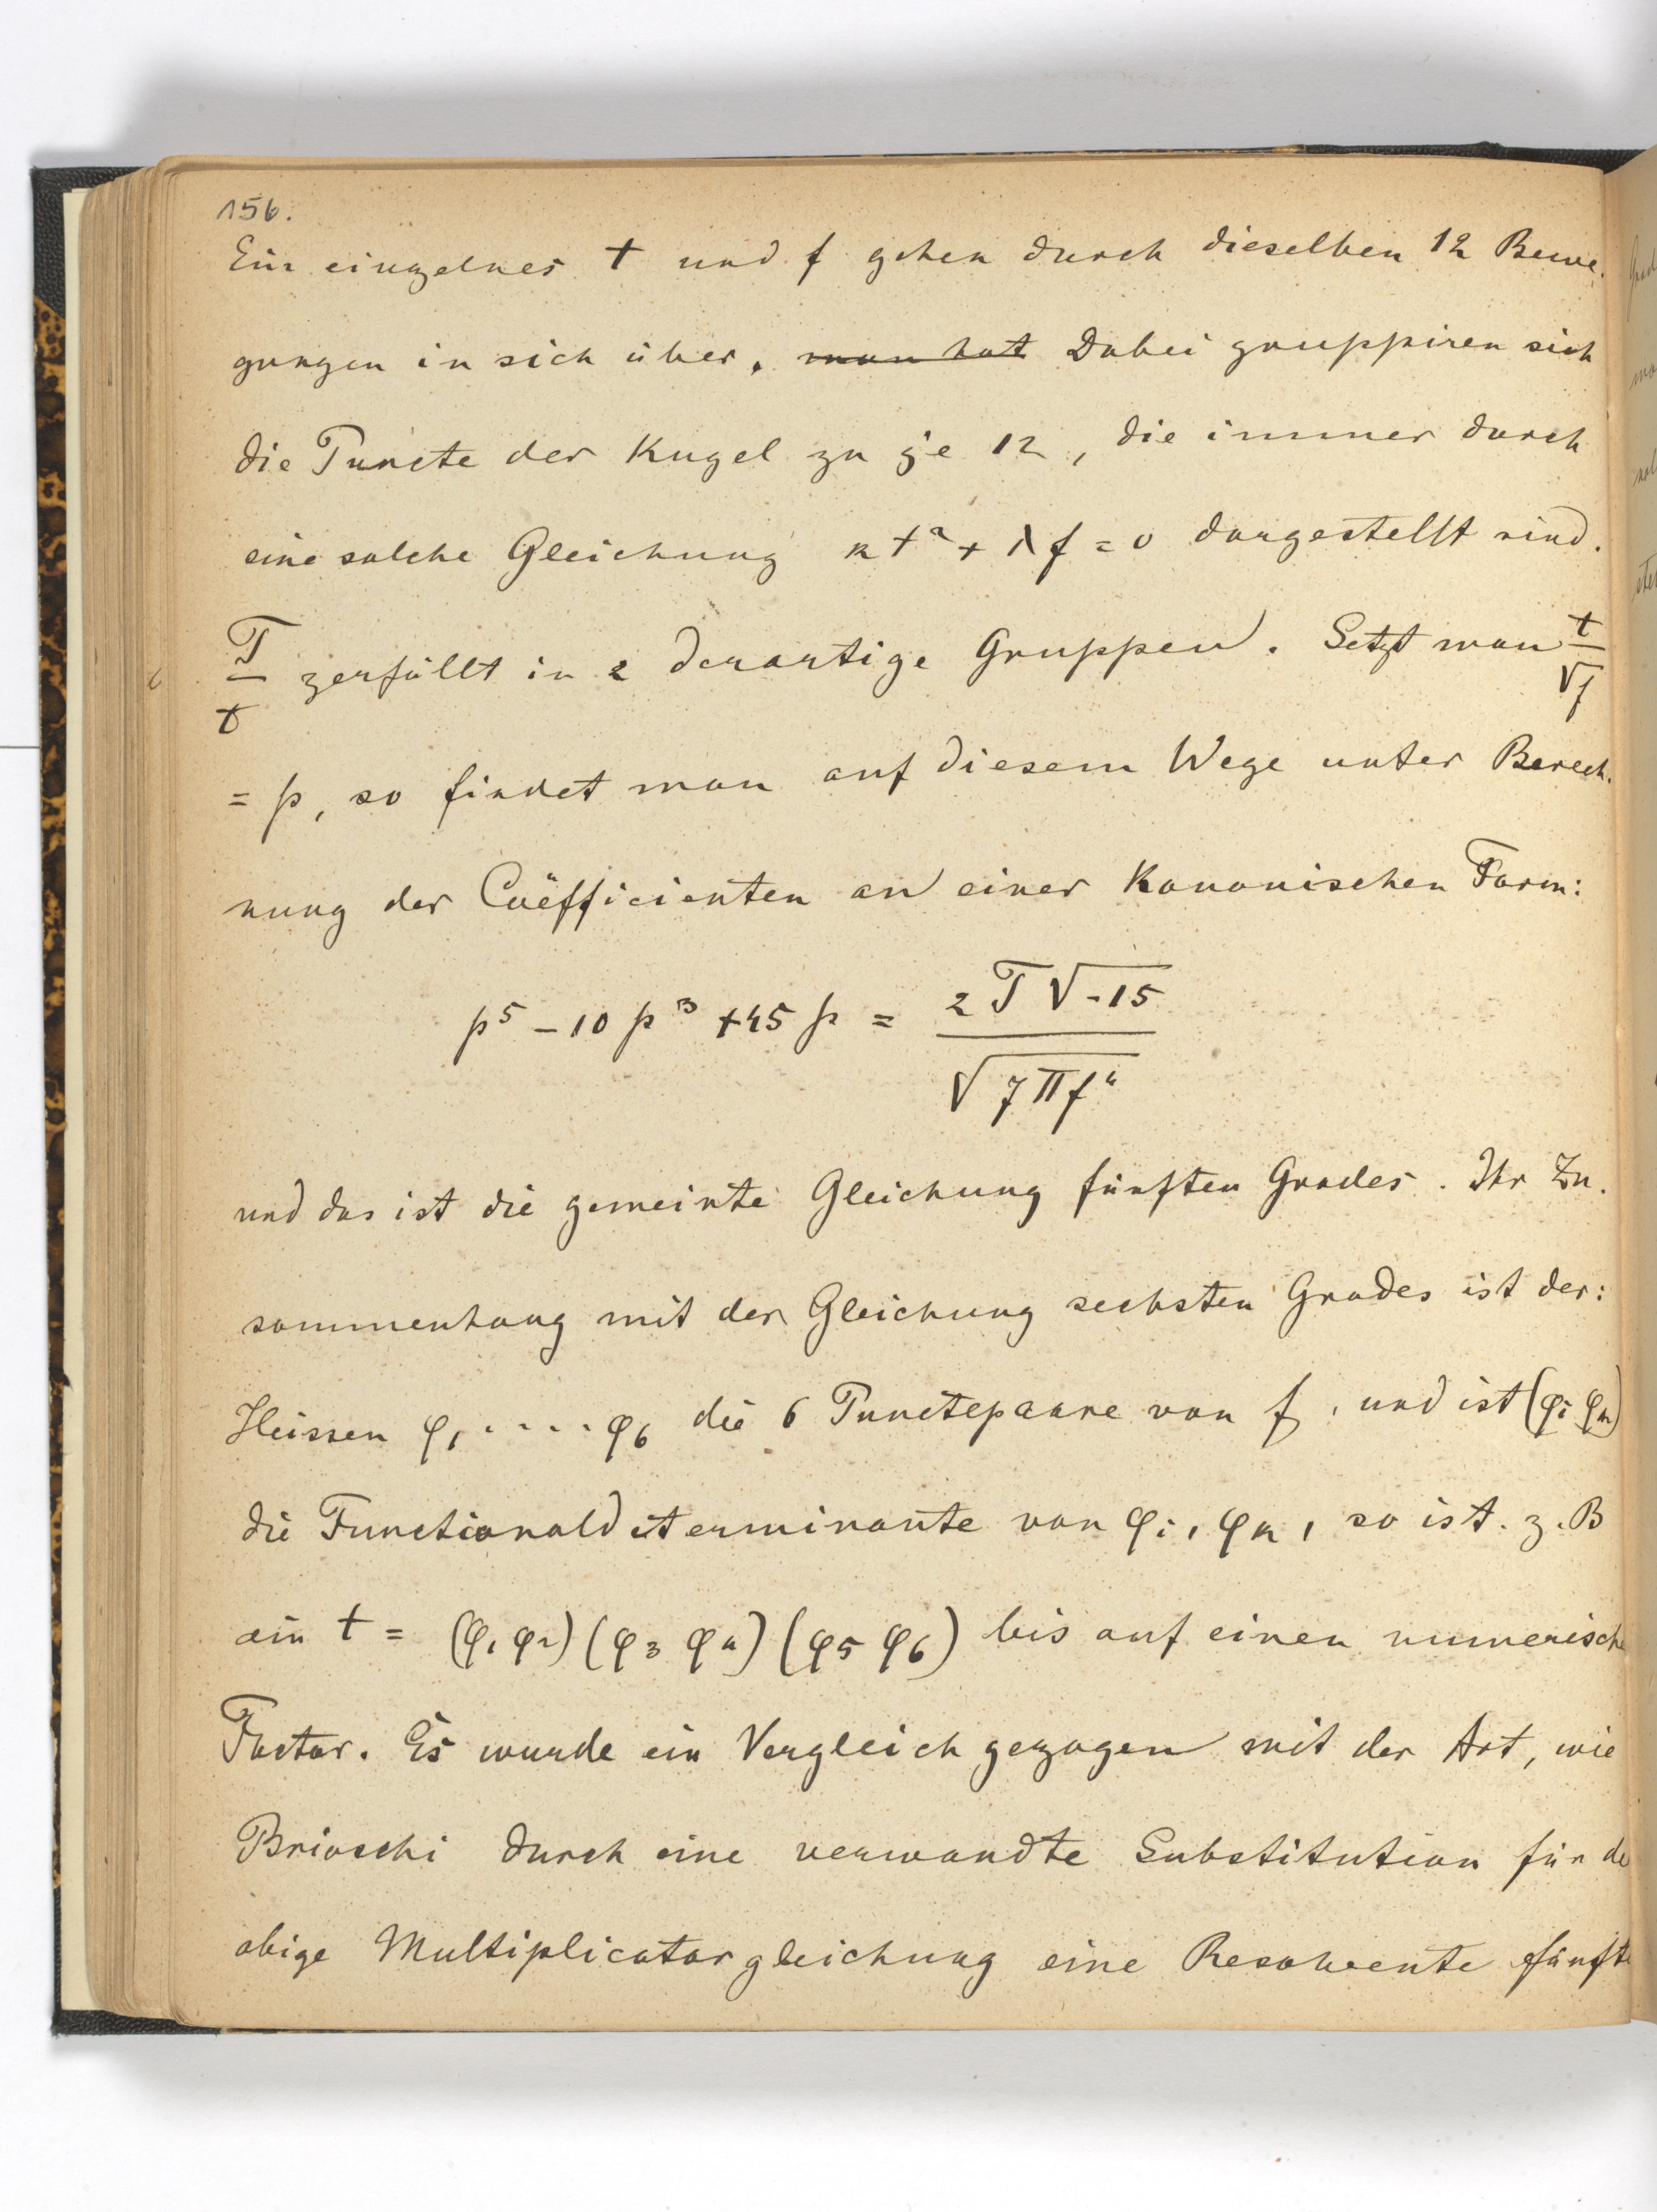 156.
Ein einzelnes t und f gehen durch dieselben 12 Bewe-
gungen in sich über. man hat Dabei gruppiren sich
die Puncte der Kugel zu je 12, die immer durch
eine solche Gleichung κt² + λf = 0 dargestellt sind.
T/t zerfällt in 2 derartige Gruppen. Setzt man t/√f
= p, so findet man auf diesem Wege unter Berech-
nung der Coëfficienten an einer kanonischen Form:
p⁵ – 10 p³ + 45 p = 2T√-15 / √7πf⁴
und das ist die gemeinte Gleichung fünften Grades. Ihr Zu-
sammenhang mit der Gleichung sechsten Grades ist der:
Heissen φ₁ ..... φ₆ die 6 Punctepaare von f, und ist (φi φk)
die Functionaldeterminante von φi, φk, so ist. z. B
ein t = (φ₁ φ₂) (φ₃ φ₄) (φ₅ φ₆) bis auf einen numerische
Factor. Es wurde ein Vergleich gezogen mit der Art, wie
Brioschi durch eine verwandte Substitution für de
obige Multiplicatorgleichung eine Resolvente fünfte